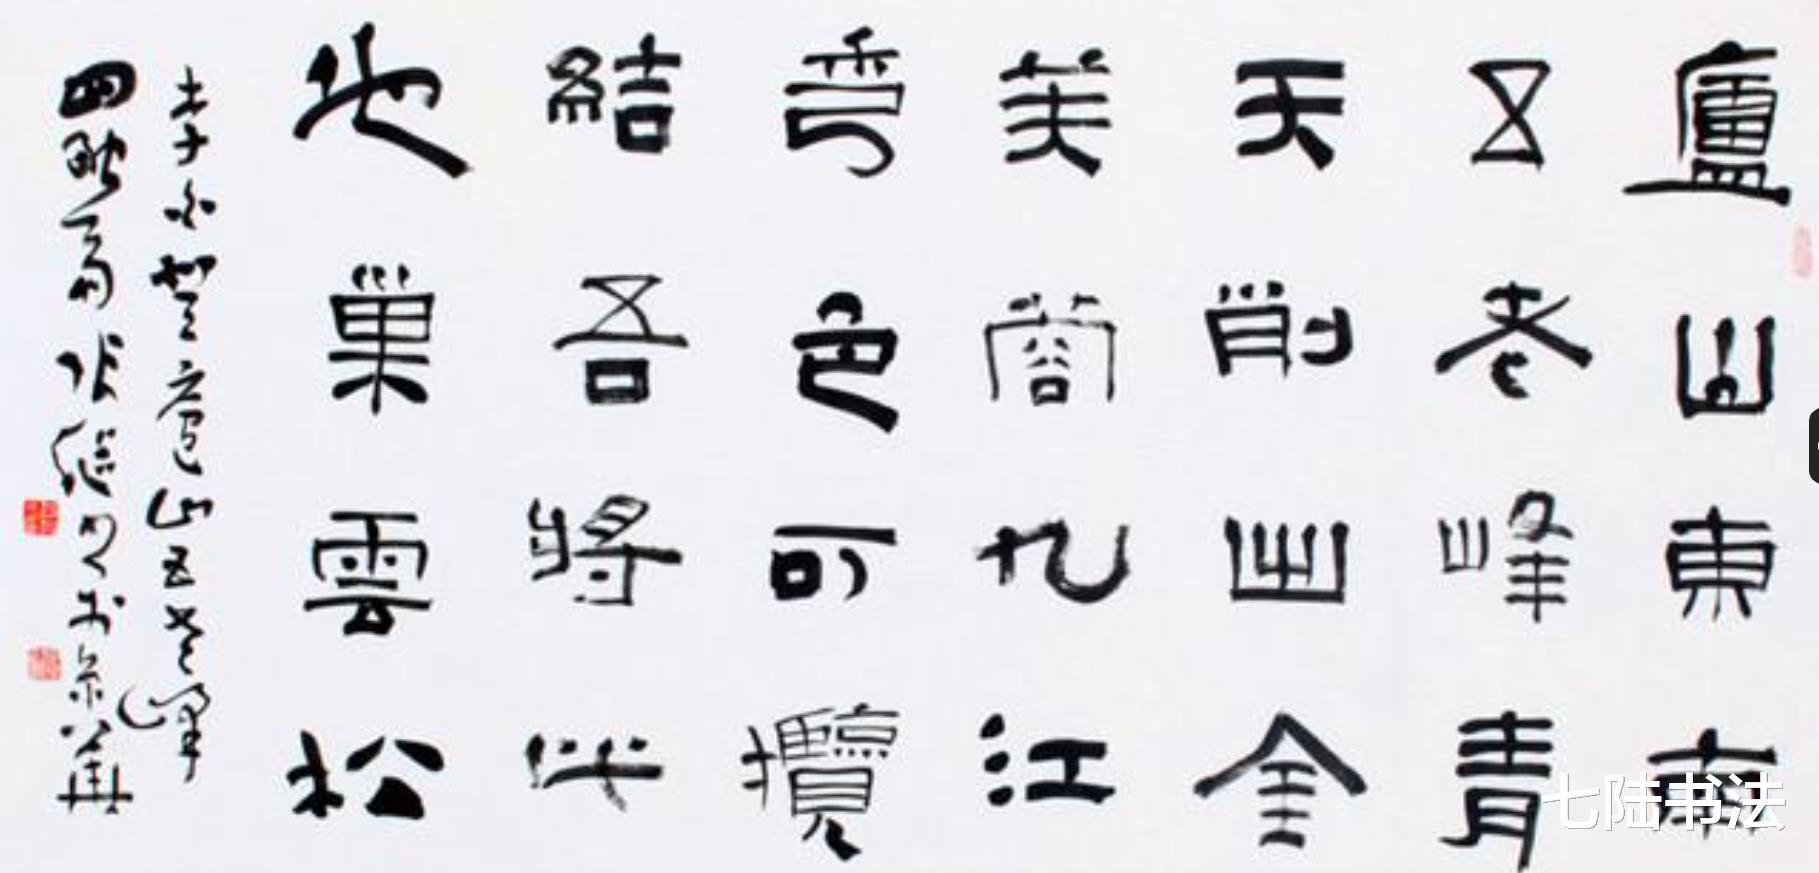 廬山東南
五老峰青
天削出金
芙蓉九江
秀色可攬
結吾將此
地巢雲松
李白登廬山五老峰
四齋張於京華
七陆书法